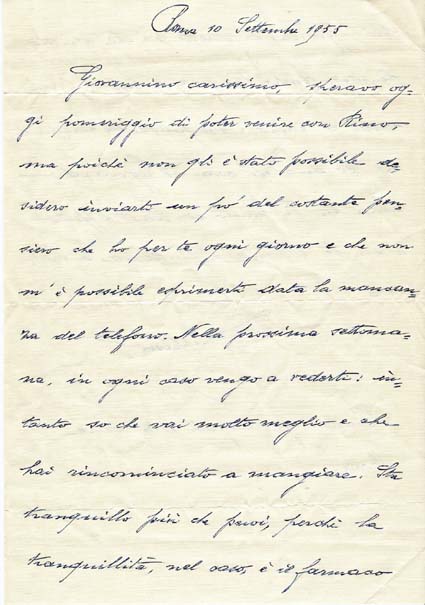 Roma 10 Settembre 1955
Giovannino carissimo speravo og-
gi pomeriggio di poter venire con
ma poichè non gli è stato possibile de-
sidero inviarti un pó del costante pen-
siero che ho per te ogni giorno e che non
m'è possibile esprimerti data la mancan-
za del telefono. Nella prossima settima-
na, in ogni caso vengo a vederti: in-
tanto so che vai molto meglio e che
hai rincominciato a mangiare. Sta
tranquillo più che puoi, perchè la
tranquillità, nel caso, è il farmaco